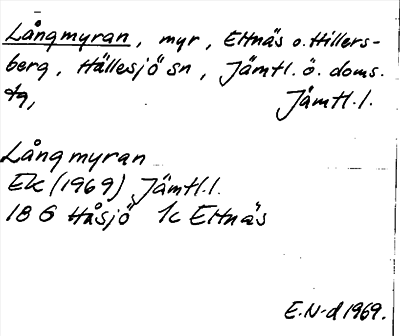 Långmyran, myr, Eltnäs o. Hillers-
berg, Hällesjö sn, Jämtl. ö. doms.
tg, Jämtl. l.
Långmyran
Ek (1969) Jämtl. l.
18 G Håsjö 1c Eltnäs
E. N-d 1969.